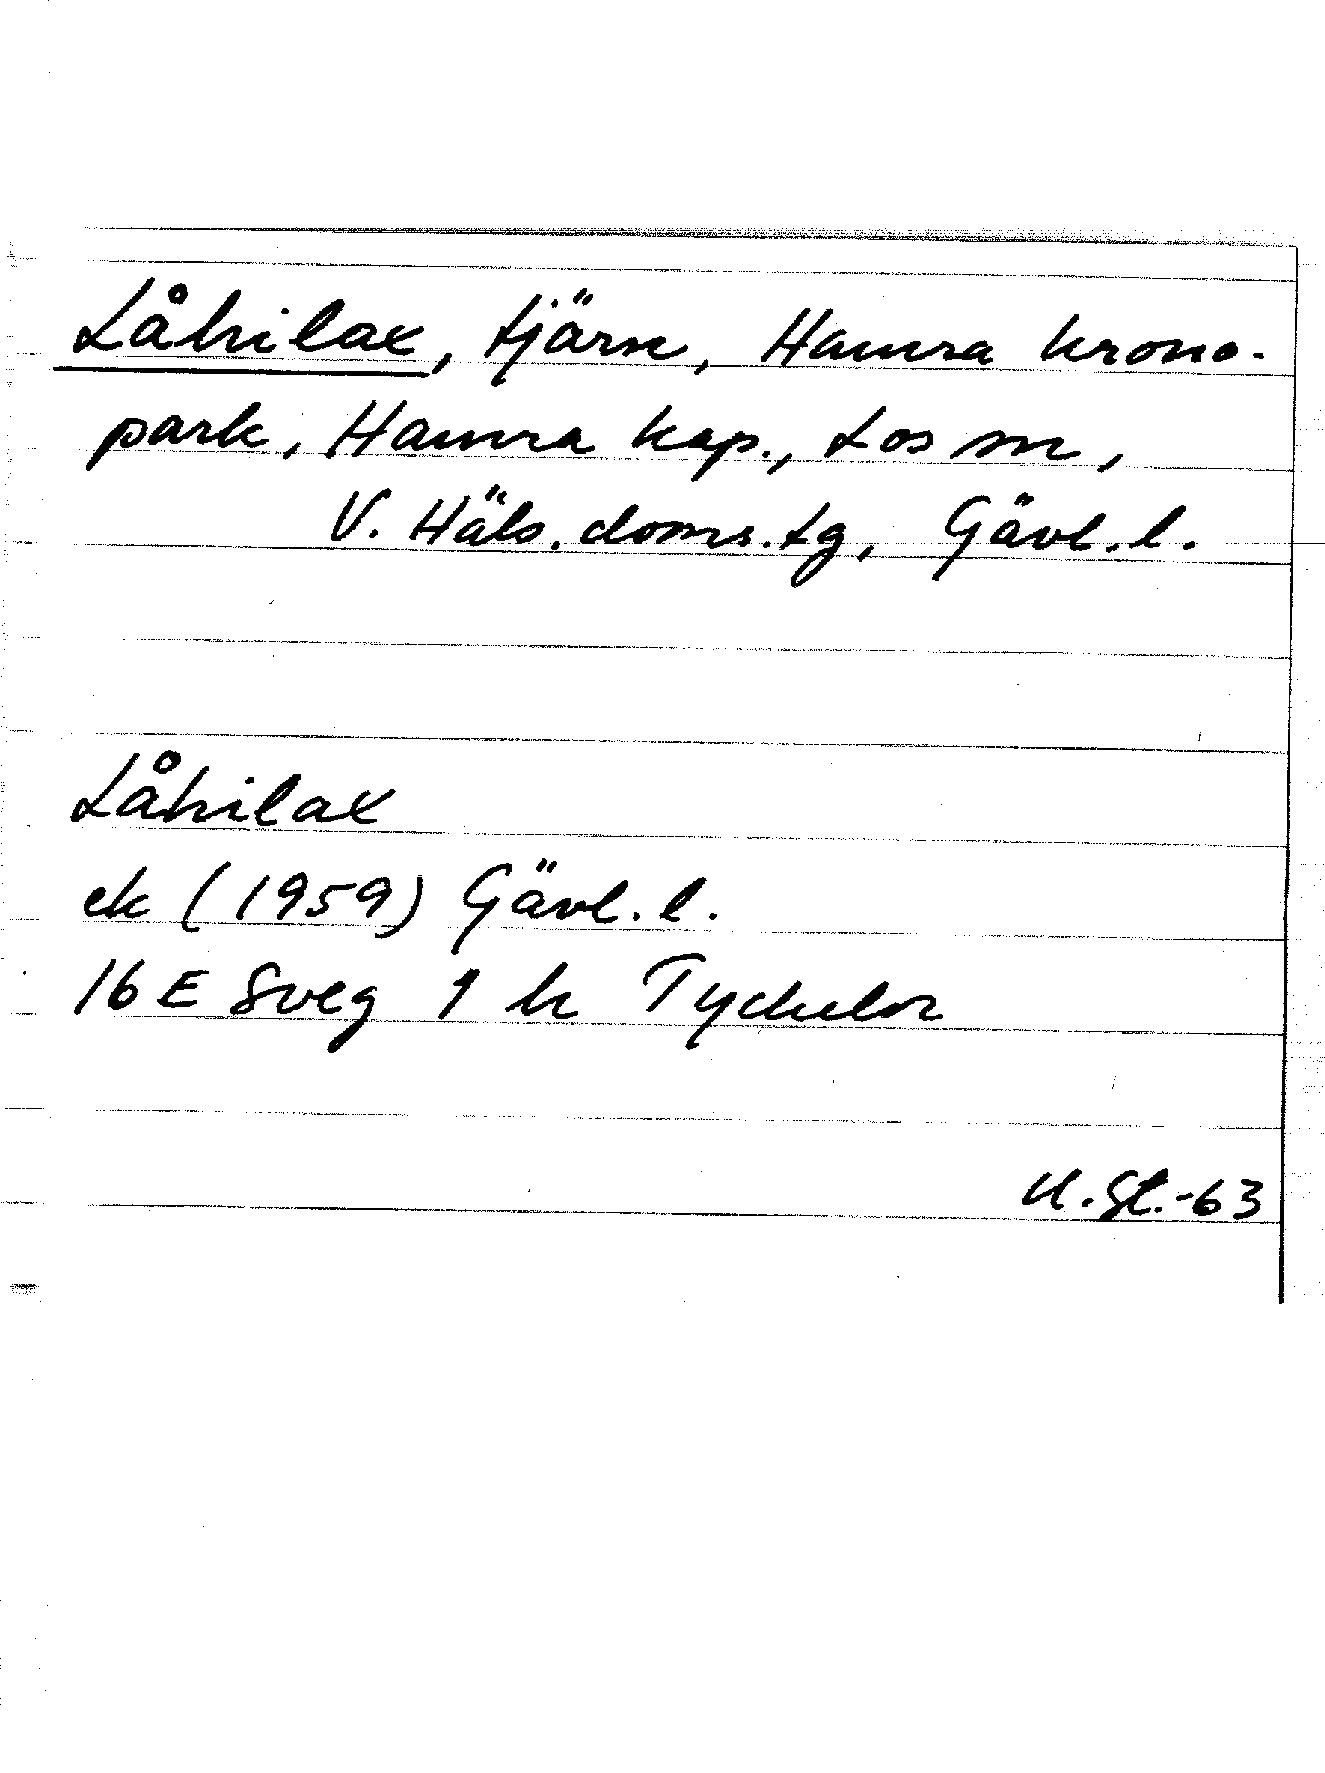 Låhilax, tjärn, Hamra krono-
park, Hamra kap., Los sn,
V. Häls. doms. tg, Gävl. l.
Låhilax
ek (1959) Gävl. l.
16 E Sveg 1 h Tyckeln
-63